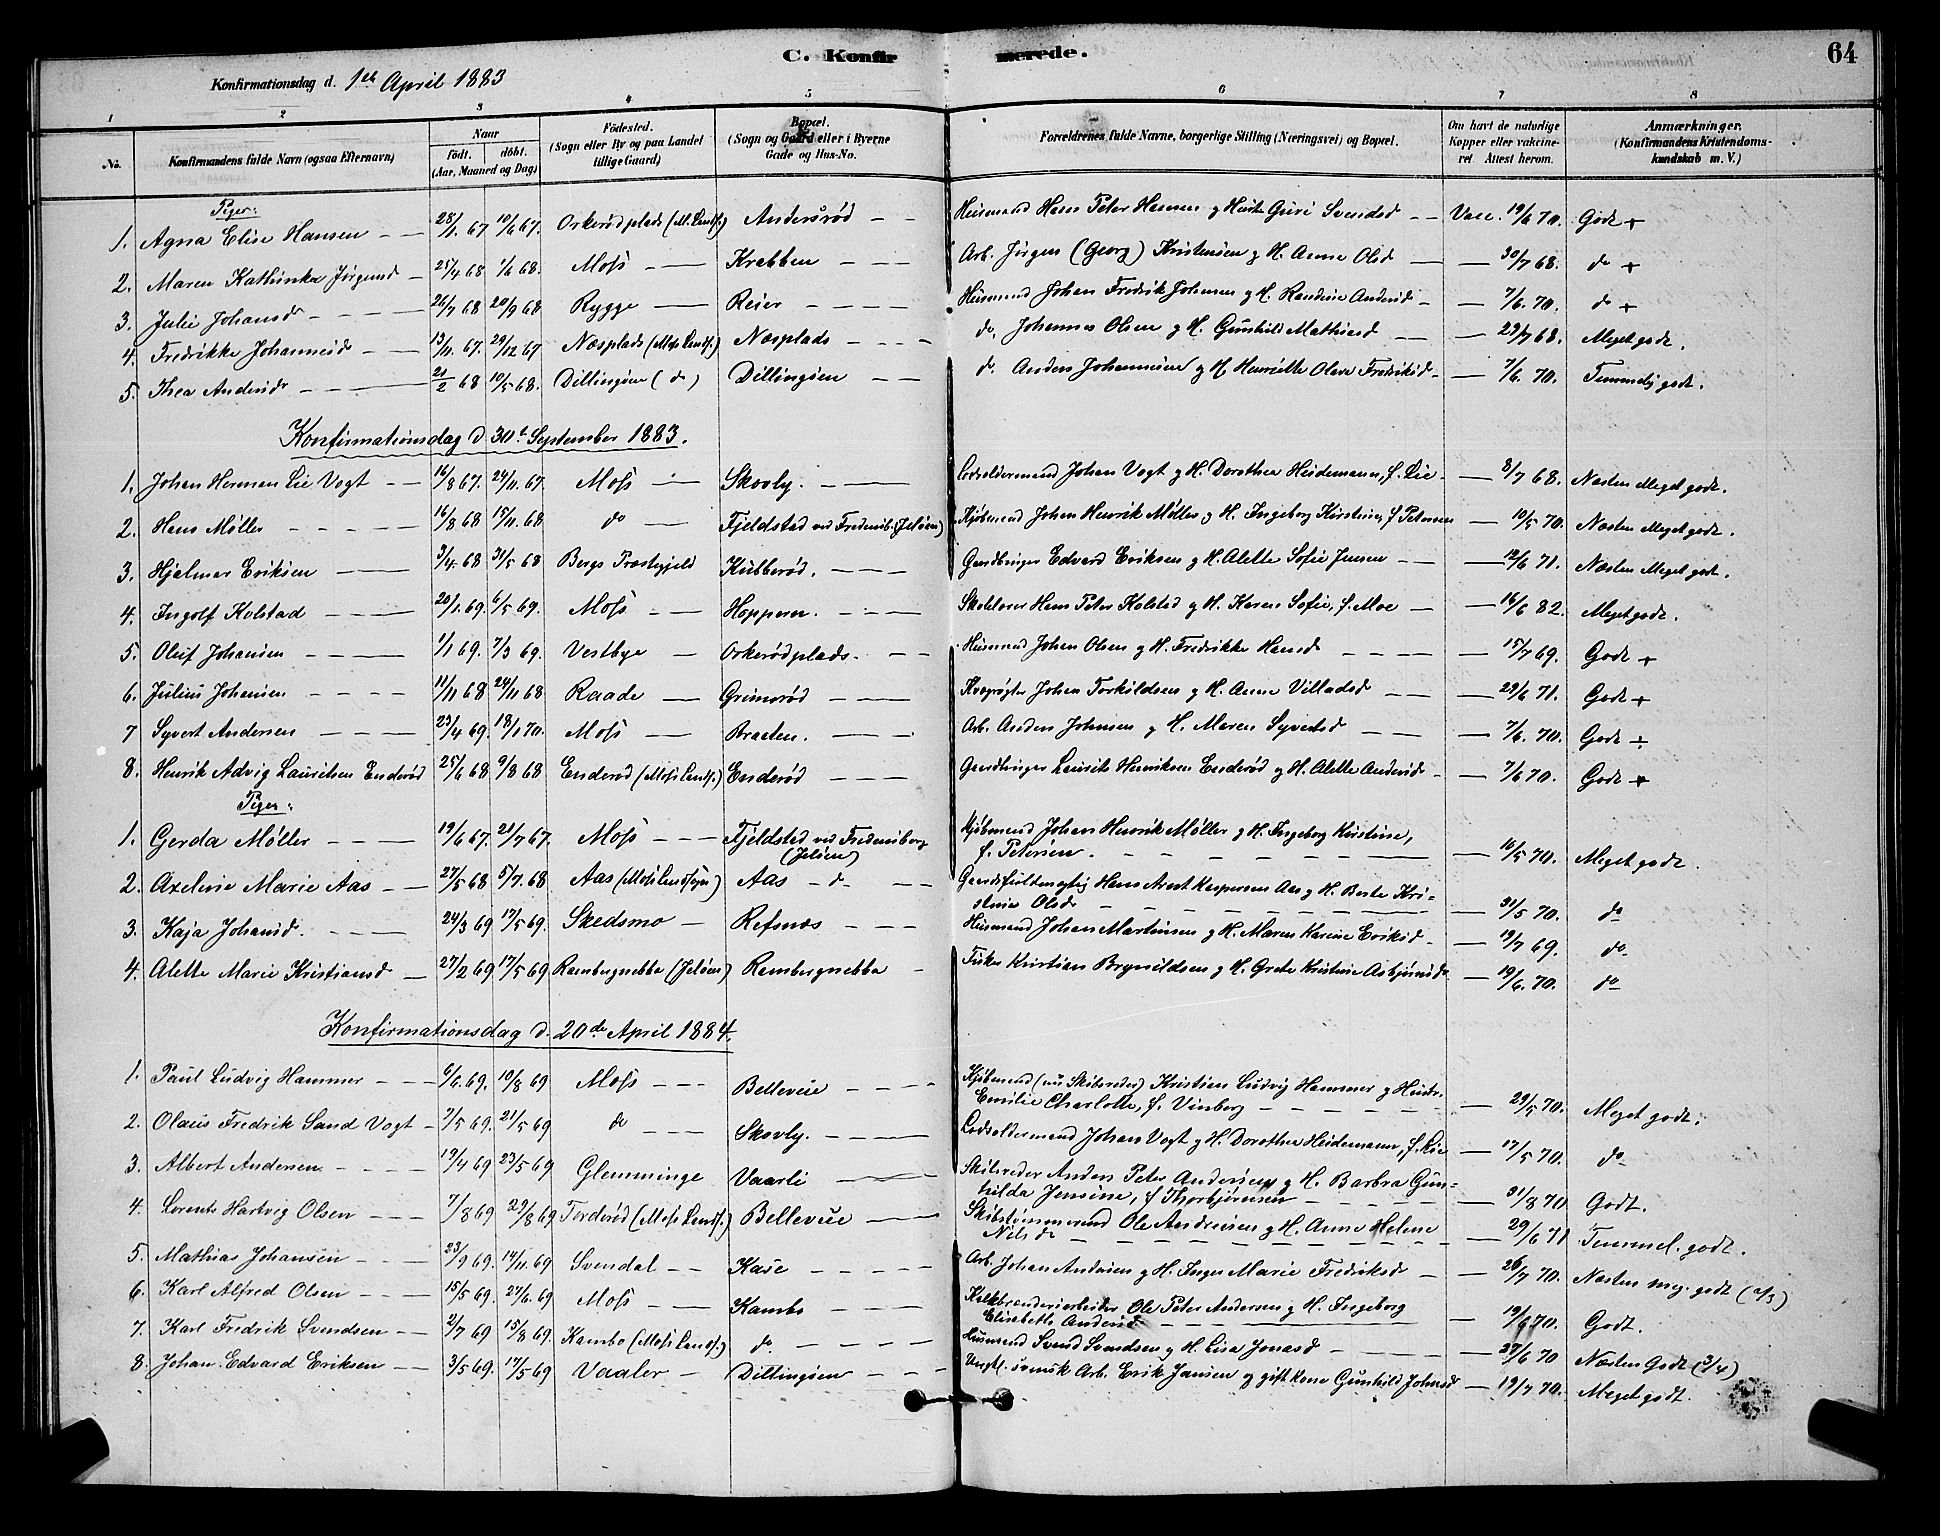 C. Konfirmerede.
64
Konfirmationsdag d. 1ste April 1883
1 2 3 4 5 6 7 8
No. Konfirmandens fulde Navn (ogsaa Efternavn) Naar født. døbt. (Aar, Maaned og Dag) Fødested. (Sogn eller By og paa Landet tillige Gaard) Bopæl. (Sogn og Gaard eller i Byerne Gade og Hus-No. Forældrenes fulde Navne, borgerlige Stilling (Næringsvei) og Bopæl. Om havt de naturlige Kopper eller vaccineret. Attest herom. Anmærkninger. (Konfirmandens Kristendomskundskab m. V.)
Piger:
1. Agna Elise Hansen 28/1 67 10/6 67. Orkerødplads (M. Lands.) Andersrød Husmand Hans Peter Hansen g Hustr Guri Svendsd Vacc. 19/6 70. Godt +
2. Maren Kathinka Jørgensd 25/4 68 1/6 68. Moss Krabben Arb. Jørgen (Georg) Kristensen g H. Anne Olsd 30/7 68. do +
3. Julie Johansd 26/7 68 20/9 68 Rygge Reier Husmand Johan Fredrik Johansen g H. Randine Andersd 7/6. 70. do +
4. Fredrikke Johannesd 13/11. 67. 29/12 67 Næsplads (Moss Lands.) Næsplads do. Johannes Olsen g H. Gunhild Mathiasd 29/7 68. Meget godt.
5. Thea Andersd 21/2 68 10/5 68. Dillingøen (do) Dillingøen do. Anders Johannesen g H. Henriette Olava Fredriksd 7/6. 70. Temmelig godt.
Konfirmationsdag d 30te September 1883.
1. Johan Herman Lie Vogt 16/8 67. 24/11. 67. Moss Skovly. Lodsoldermand Johan Vogt g H. Dorothea Heidemann, f. Lie 8/7 68. Næsten Meget godt.
2. Hans Møller 16/8 68 15/11. 68 do Fjeldstad ved Fredensb. (Jeløen) Kjøbmand Johan Henrik Møller g H. Ingeborg Kirstine, f Petersen 10/5 70. Næsten Meget godt.
3. Hjalmar Eriksen 3/4. 68 31/5 68 Bergs Præstegjeld Kubberød. Gaardbruger Edvard Eriksen g H. Alette Sofie Jensen 12/6 71. Næsten Meget godt.
4. Ingolf Kolstad 20/1. 69. 6/5 69. Moss Hoppern. Skolelærer Hans Peter Kolstad g H. Karen Sofie, f. Moe 16/6 82. Meget godt.
5. Oluf Johansen 1/1 69. 7/3 69. Vestbye Orkerødplads. Husmand Johan Olsen g H. Fredrikke Hansd 15/7 69. Godt +
6. Julius Johansen 11/11 68 24/11 68 Raade Grimsrød Kvægrøgter Johan Torkildsen g H. Anne Villadsd 29/6 71. Godt +
7 Syvert Andersen 23/4 69. 18/1 70. Moss Braaten. Arb. Anders Johansen g H. Maren Syvertsd 7/6. 70. Godt +
8. Henrik Advig Lauritsen Enderød 25/6 68 9/8 68 Enderød (Moss Lands.) Enderød Gaardbruger Laurits Henriksen Enderød g H. Alette Andersd 7/6 70. Godt +
Piger:
1. Gerda Møller 19/6 67. 21/7 67. Moss Fjeldstad ved Fredensborg (Jeløen) Kjøbmand Johan Henrik Møller g H. Ingeborg Kirstine,
f. Petersen. 10/5 70. Meget godt.
2. Axeline Marie Aas 27/5 68 5/7. 68 Aas (Moss Landsogn) Aas do Gaardsfuldmægtig Hans Arent Kaspersen Aas g H. Berte Kri-
stine Olsd 31/5 70. do
3. Kaja Johansd. 24/3 69 17/5 69. Skedsmo Refsnæs Husmand Johan Martinsen g H. Maren Karine Eriksd 19/7 69. do
4. Alette Marie Kristiansd 27/2 69 17/5 69 Rambergnebba (Jeløen) Rambergnebba Fisker Kristian Brynildsen g H. Grete Kristine Asbjørnsd 19/6. 70. do
Konfirmationsdag d. 20de April 1884.
1. Paul Ludvig Hammer 6/6 69. 10/8 69 Moss Bellevue Kjøbmand (nu Skibsreder) Kristian Ludvig Hammer g Hustr.
Emilie Charlotte, f. Vinberg 29/5 70. Meget godt.
2. Olaus Fredrik Sand Vogt 7/5 69. 21/5 69 do Skovly. Lodsoldermand Johan Vogt g H. Dorothea Heidemann, f. Lie 17/5 70. do
3. Albert Andersen 19/4 69 23/5 69 Glemminge Vaarli Skibsreder Anders Peter Andersen g H. Barbra Gun-
hilda Jensine, f Thorbjørnsen 31/8 70 Godt.
4. Lorents Hartvig Olsen 7/8 69 22/8 69 Torderød (Moss Lands.) Bellevue Skibstømmermand Ole Andersen g H. Anne Helene
Nilsd 29/6 71 Temmel. godt.
5. Mathias Johansen 23/9 69. 14/11. 69 Svendal Kase Arb. Johan Andersen g H. Inger Marie Fredriksd 26/7 70. Næsten meg. godt (2/3)
6. Karl Alfred Olsen 15/5 69. 27/6. 69 Moss Kambo Kalkbrænderiarbeider Ole Peter Andersen g H. Ingeborg
Elisabeth Andersd 19/6 70. Godt.
7. Karl Fredrik Svendsen 2/7 69 15/8 69. Kambo (Moss Lands.) do. Husmand Svend Svendsen g H. Lisa Jonasd 27/6 70 Næsten Godt (3/4)
8. Johan Edvard Eriksen 3/5 69. 17/5 69 Vaaler Dillingøen Ungk. svensk Arb. Erik Jansen g gift Kone Gunhild Johansd 19/7 70. Meget godt.